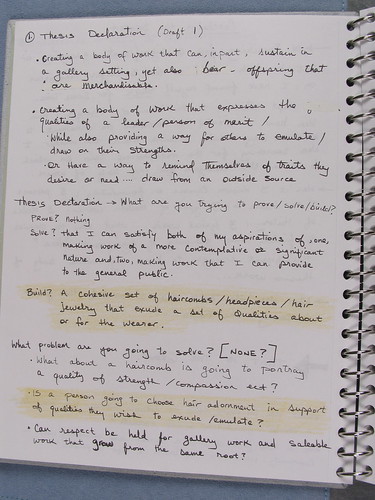 ① Thesis Declaration (Draft 1)
• Creating a body of work that can, in part, sustain in
a gallery setting, yet also bear - offspring that
are merchandisable.
• Creating a body of work that expresses the
qualities of a leader/person of merit/
While also providing a way for others to emulate/
draw on their strengths.
- Or have a way to remind themselves of traits they
desire or need .... draw from an outside source
Thesis Declaration → What are you trying to prove/solve/build?
Prove? Nothing
Solve? that I can satisfy both of my aspirations of, one,
making work of a more contemplative or significant
nature and, two, making work that I can provide
to the general public.
Build? A cohesive set of haircombs/headpieces/hair
jewelry that exude a set of qualities about
or for the wearer.
What problem are you going to solve? [NONE?]
• What about a haircomb is going to portray
a quality of strength/compassion ect?
• Is a person going to choose hair adornment in support
of qualities they wish to exude/emulate?
• Can respect be held for gallery work and saleable
work that grow from the same root?